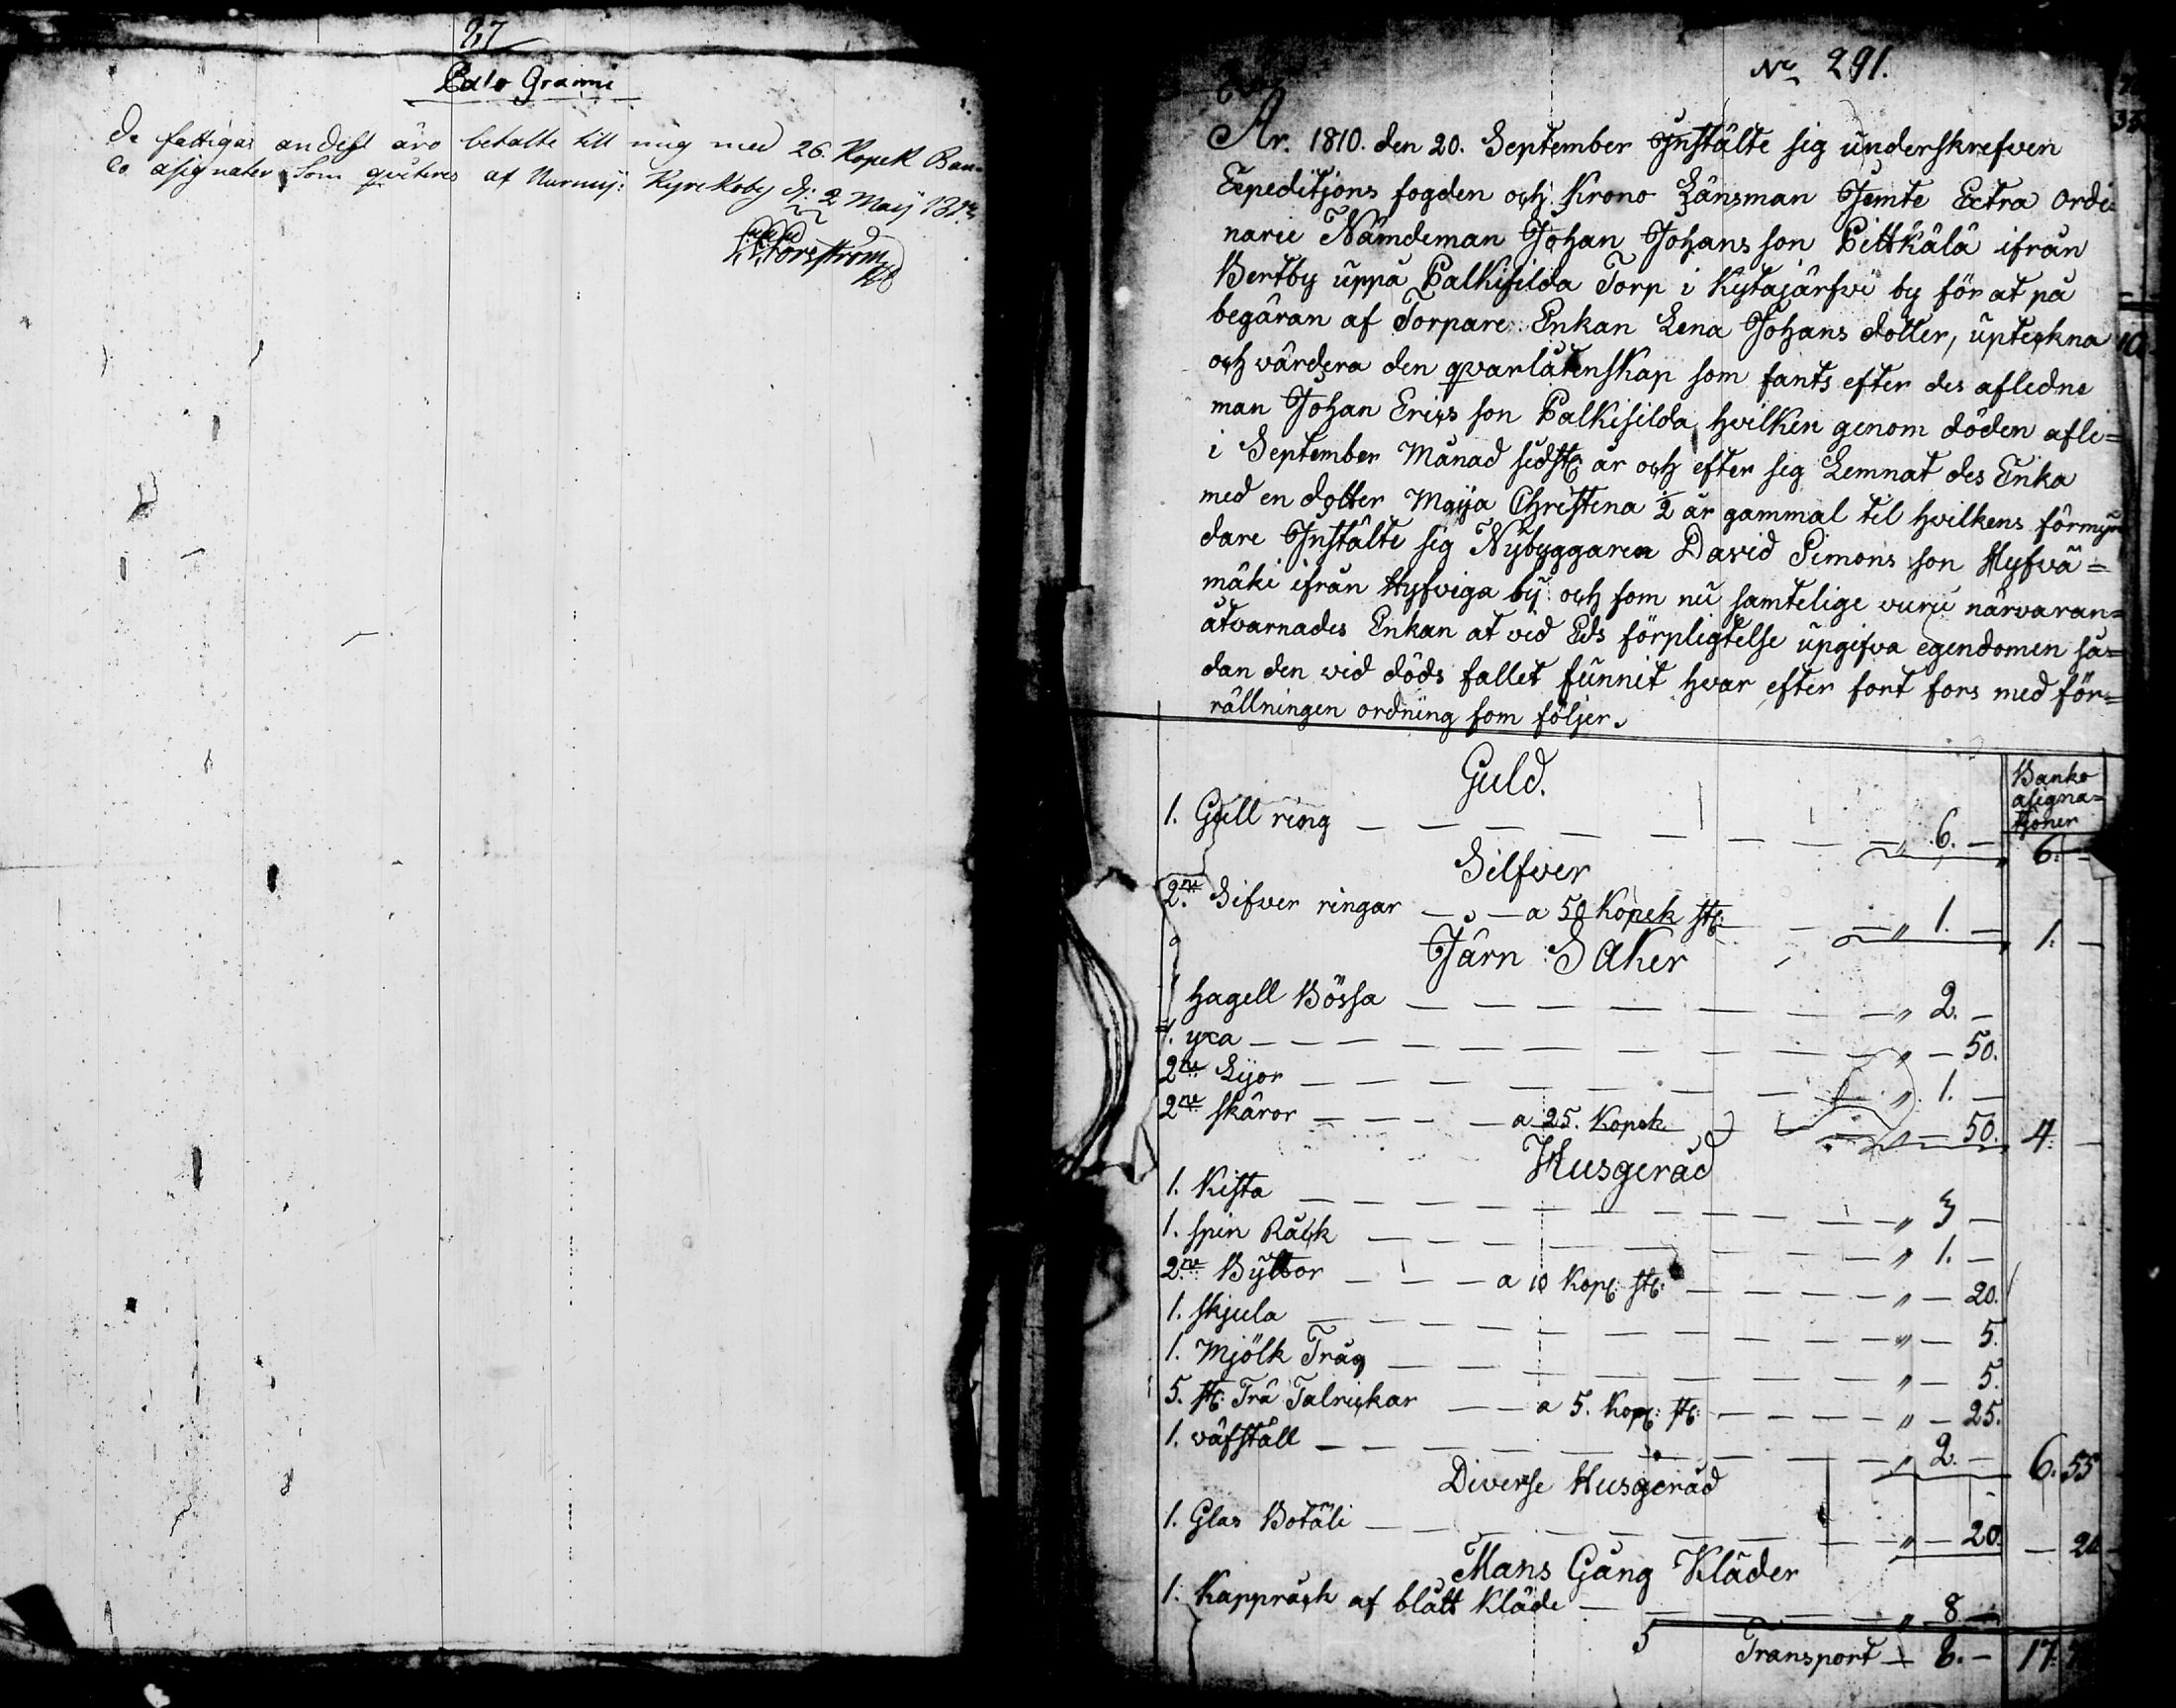 27
Palo Granni
De fattigas andehl äro betalte till mig med 26. Kopek Ban-
co asignater, Som qviteres af Nurmij: Kyrckoby d: 2 Maij
Forsström
No 291.
År. 1810. den 20. September Instälte sig underskrefven
Expeditjons fogden och Krono Länsman Jemte Extra Ordi-
narie Nämdeman Johan Johans son Pittkälä ifrån
Bertby uppå Palkisilda Torp i Kytajärfwi by för at på
begäran af Torpare Enkan Lena Johans dotter, upteckna
och värdera den qvarlåtenskap som fants efter des afledne
man Johan Erics son Palkisilda, hvilken genom döden afle=
i September Månad sidstl: år och efter sig Lemnat des Enka
med en dotter Maija Christina ½ år gammal til hvilkens förmyn
dare Instälte sig Nybyggaren David Simons son Hyfvä=
mäki ifrån Hyfviga by: och som nu samtelige voru närvaran=
åtvarnades Enkan at vid Eds förpligtelse upgifva egendomen så=
dan den wid döds fallet funnit hvar efter fort fors med för=
rällningen ordning som följer.
Banko
asigna=
tjoner
Guld.
1. Gull ring — — — „ 6. — 6. —
Silfver
2ne Sifver ringar — — a 50 Kopek st: — — „ 1. — 1. —
Järn Saker
1 hagell Bössa — — — „ 2. —
1. yxa — — — „ — 50.
2ne Lijor — — — „ 1. —
2ne skäror — — — a 25. Kopek „ — 50. 4. —
Husgeråd
1. Kista — — — „ 3 —
1. spin Råck — — — „ 1. —
2ne Byttor — — — a 10 Kop: st: — — „ — 20.
1. skjula — — — „ — 5.
1. Mjölk Tråg — — — „ — 5.
5. st: Trä Talrickar — — a 5. Kop: st: — — „ — 25.
1. väfställ — — — „ 2. — 6. 55
Diverse Husgeråd
1. Glas Botäli — — — „ — 20. — 20
Mans Gång Kläder
1. Kappråck af blått Kläde — — — „ 8 —
Transport — 8. — 17.